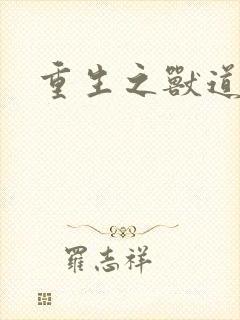 重生之獸道
羅志祥